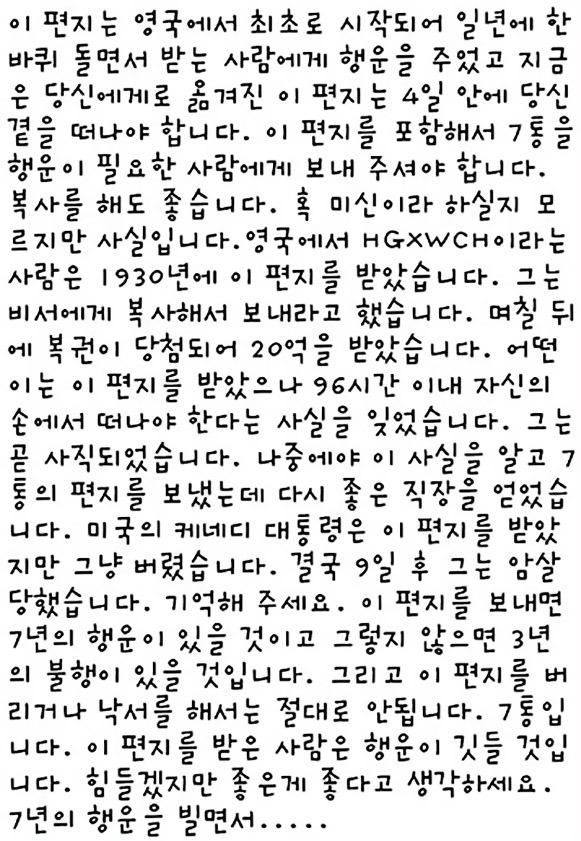 이 편지는 영국에서 최초로 시작되어 일년에 한
바퀴 돌면서 받는 사람에게 행운을 주었고 지금
은 당신에게로 옮겨진 이 편지는 4일 안에 당신
곁을 떠나야 합니다. 이 편지를 포함해서 7통을
행운이 필요한 사람에게 보내 주셔야 합니다.
복사를 해도 좋습니다. 혹 미신이라 하실지 모
르지만 사실입니다.영국에서 HGXWCH이라는
사람은 1930년에 이 편지를 받았습니다. 그는
비서에게 복사해서 보내라고 했습니다. 며칠 뒤
에 복권이 당첨되어 20억을 받았습니다. 어떤
이는 이 편지를 받았으나 96시간 이내 자신의
손에서 떠나야 한다는 사실을 잊었습니다. 그는
곧 사직되었습니다. 나중에야 이 사실을 알고 7
통의 편지를 보냈는데 다시 좋은 직장을 얻었습
니다. 미국의 케네디 대통령은 이 편지를 받았
지만 그냥 버렸습니다. 결국 9일 후 그는 암살
당했습니다. 기억해 주세요. 이 편지를 보내면
7년의 행운이 있을 것이고 그렇지 않으면 3년
의 불행이 있을 것입니다. 그리고 이 편지를 버
리거나 낙서를 해서는 절대로 안됩니다. 7통입
니다. 이 편지를 받은 사람은 행운이 깃들 것입
니다. 힘들겠지만 좋은게 좋다고 생각하세요.
7년의 행운을 빌면서.....